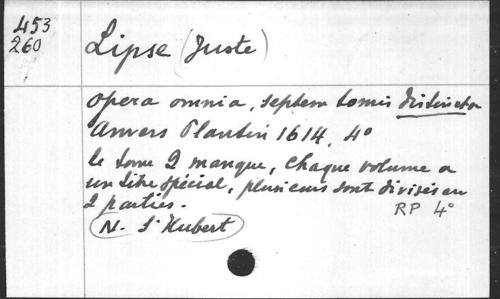 453
260
Lipse (Juste)
Opera omnia, septem tomis distincta
Anvers Plantin 1614, 4°
le tome 2 manque, Chaque volume a
un titre spécial, plusieurs sont divisés en
2 parties.
RP 4°
N. St Hubert